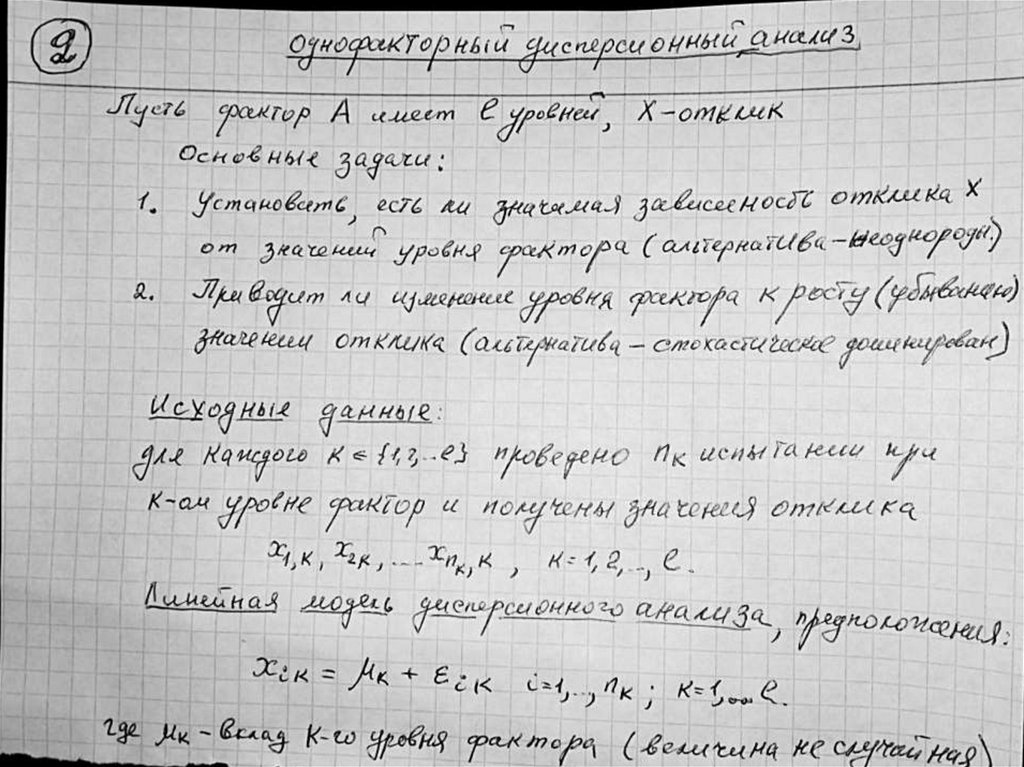 2
Однофакторный дисперсионный анализ
Пусть фактор A имеет l уровней, X-отклик
Основные задачи:
1. Установить, есть ли значимая зависимость отклика X
от значений уровня фактора (альтернатива - неоднородн.)
2. Приводит ли изменение уровня фактора к росту (убыванию)
значении отклика (альтернатива - стохастическое доминирован)
Исходные данные:
для каждого k ∈ {1,2,..l} проведено nₖ испытании при
k-ом уровне фактор и получены значения отклика
x₁,ₖ, x₂ₖ, ... xₙₖ,ₖ , k=1,2,..,l.
Линейная модель дисперсионного анализа, предположения:
xᵢₖ = μₖ + εᵢₖ i=1,..,nₖ; k=1,...l.
где μₖ - вклад k-го уровня фактора (величина не случайная)